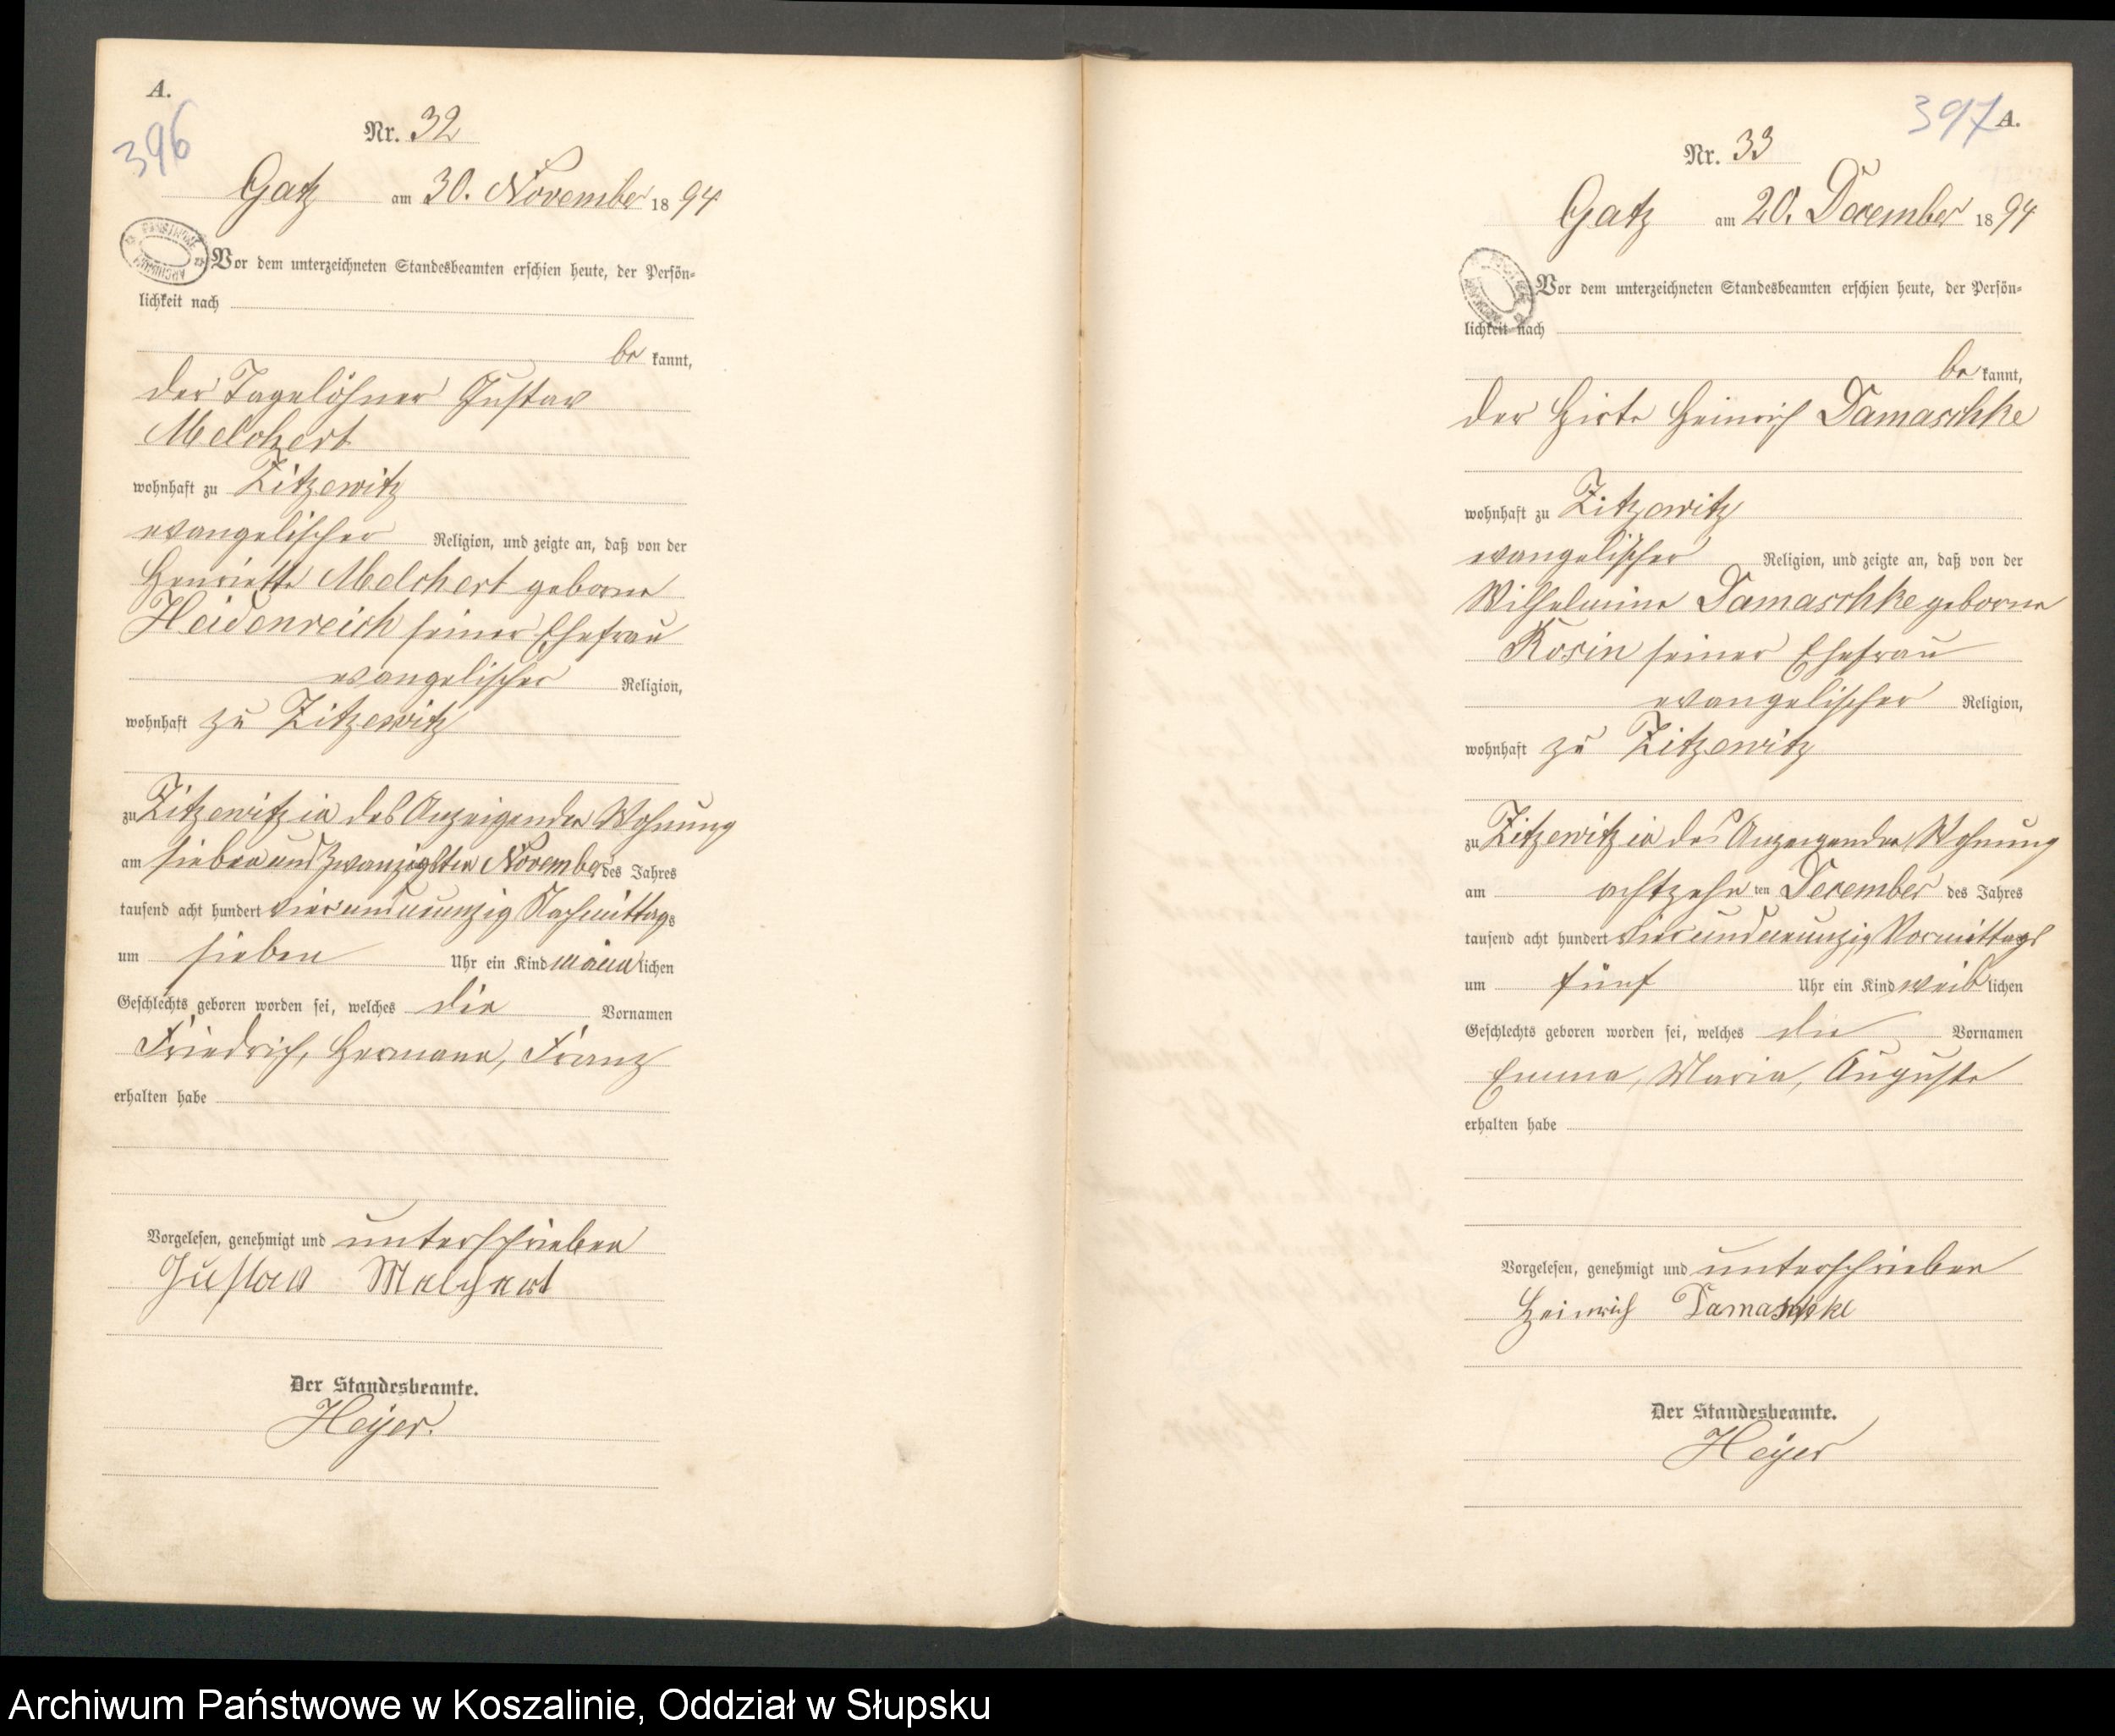 A.
396
Nr. 32
Gatz am 30. November 1894
Vor dem unterzeichneten Standesbeamten erschien heute, der Persön-
lichkeit nach
be kannt,
der Tagelöhner Gustav
Melchert
wohnhaft zu Zitzewitz
evangelischer Religion, und zeigte an, daß von der
Henriette Melchert geborne
Heidenreich seiner Ehefrau
evangelischer Religion,
wohnhaft zu Zitzewitz
zu Zitzewitz in des Anzeigenden Wohnung
am siebenundzwanzigsten November des Jahres
tausend acht hundert vierundneunzig Nachmittags
um sieben Uhr ein Kind männlichen
Geschlechts geboren worden sei, welches die Vornamen
Friedrich, Hermann, Franz
erhalten habe
Vorgelesen, genehmigt und unterschrieben
Gustav Melchert
Der Standesbeamte.
Heyer.
397 A.
Nr. 33
Gatz am 20. December 1894
Vor dem unterzeichneten Standesbeamten erschien heute, der Persön-
lichkeit nach
be kannt,
der Hirte Heinrich Damaschke
wohnhaft zu Zitzewitz
evangelischer Religion, und zeigte an, daß von der
Wilhelmine Damaschke geborne
Kosin seiner Ehefrau
evangelischer Religion,
wohnhaft zu Zitzewitz
zu Zitzewitz in des Anzeigenden Wohnung
am achtzehn ten December des Jahres
tausend acht hundert vierundneunzig Vormittags
um fünf Uhr ein Kind weiblichen
Geschlechts geboren worden sei, welches die Vornamen
Emma, Maria, Auguste
erhalten habe
Vorgelesen, genehmigt und unterschrieben
Heinrich Damaschke
Der Standesbeamte.
Heyer
Archiwum Państwowe w Koszalinie, Oddział w Słupsku